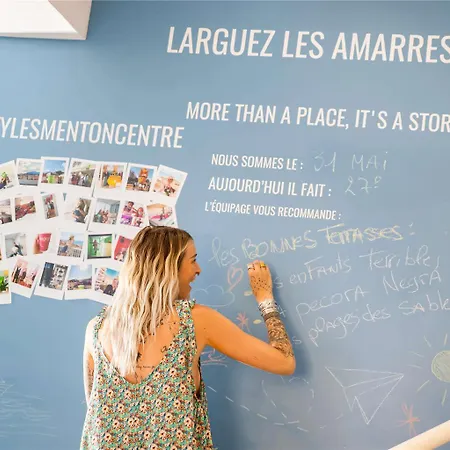 LARGUEZ LES AMARRES
YLESMENTONCENTRE
MORE THAN A PLACE, IT'S A STOR
NOUS SOMMES LE : 31 MAI
AUJOURD'HUI IL FAIT : 27°
L'ÉQUIPAGE VOUS RECOMMANDE :
les BONNES Terrasses :
enfants terribles
pecora Negra
plages des sable